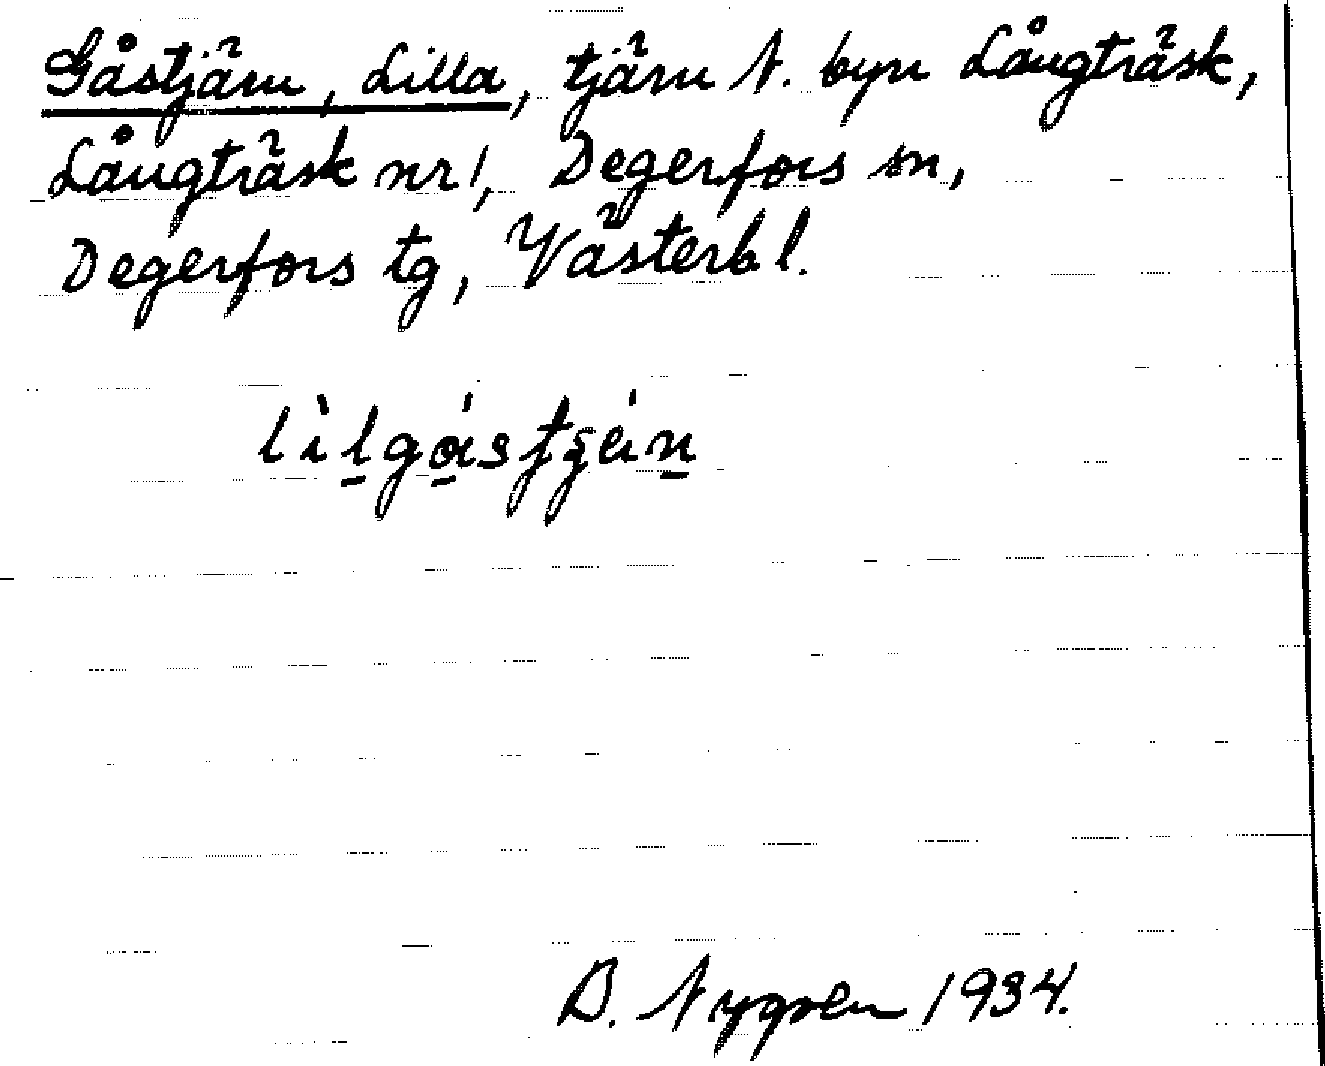 Gåstjärn, Lilla, tjärn N. byn Långträsk,
Långträsk nr 1, Degerfors sn,
Degerfors tg, Västerb l.
B. Nygren 1934.